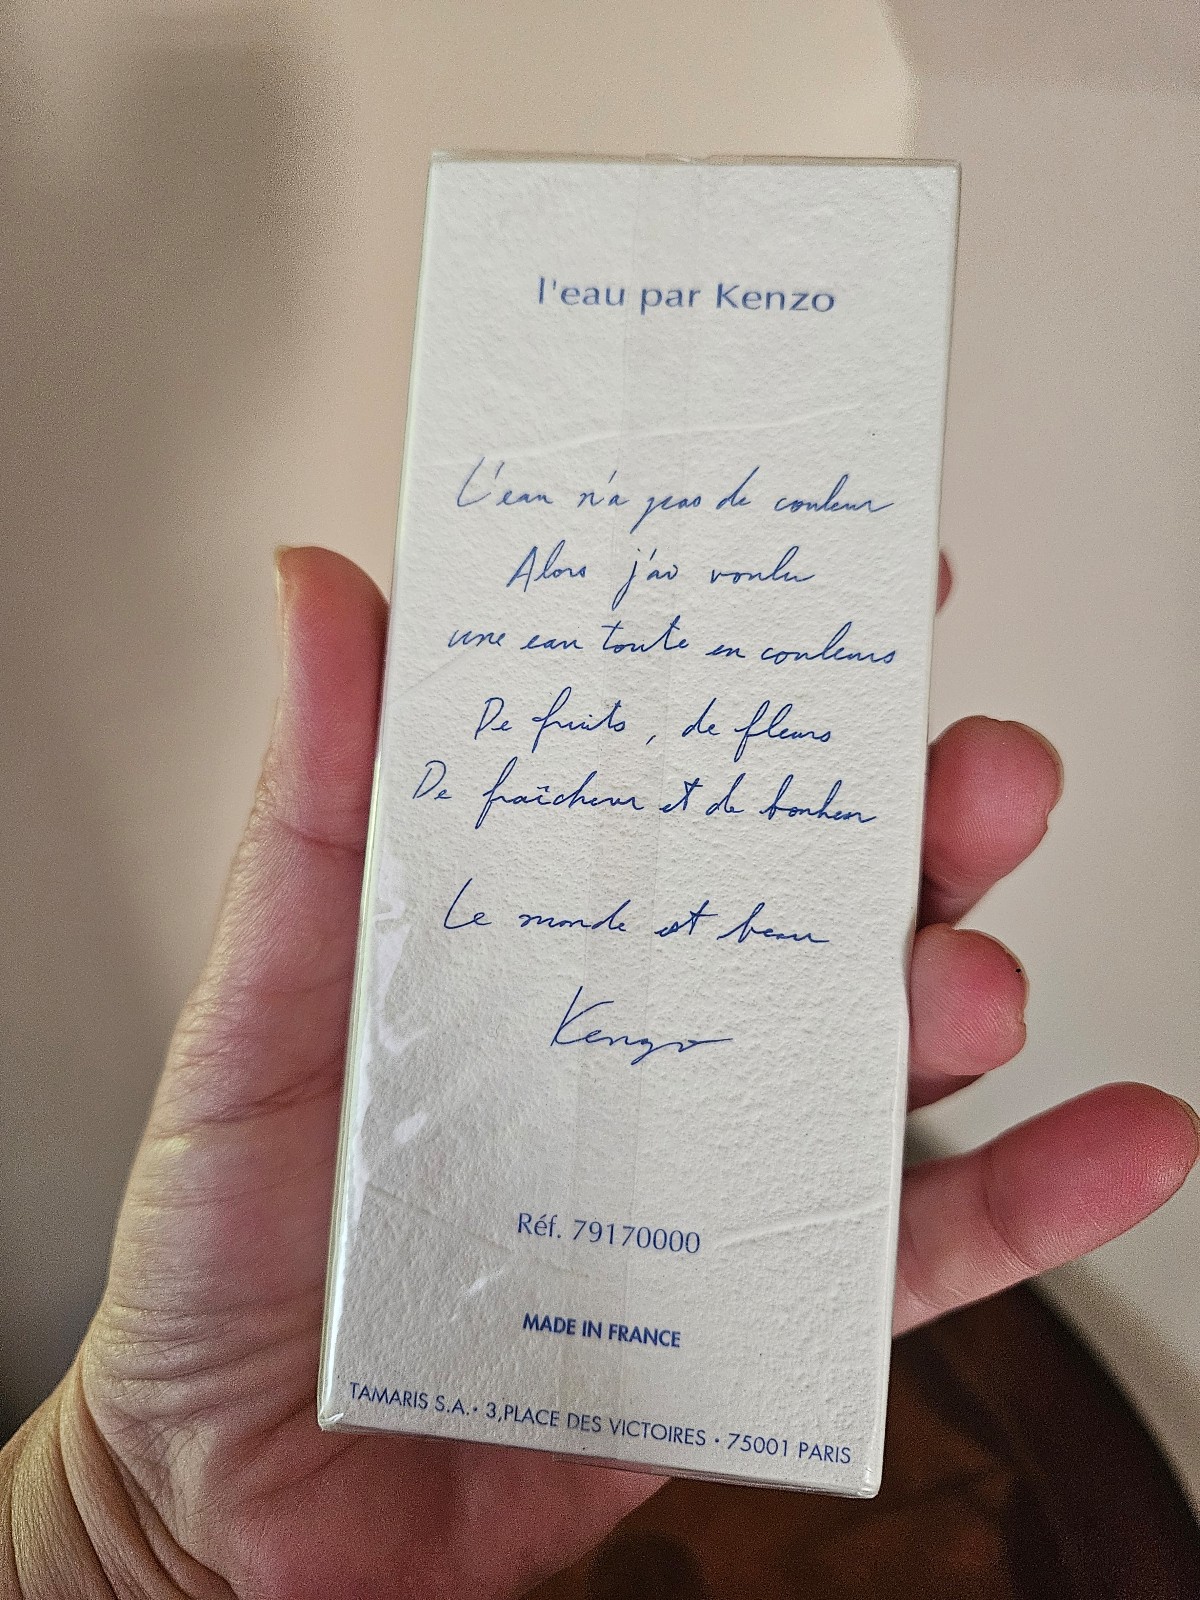 l'eau par Kenzo
L'eau n'a pas de couleur
Alors j'ai voulu
une eau toute en couleurs
De fruits, de fleurs
De fraîcheur et de bonheur
Le monde est beau
Kenzo
Réf. 79170000
MADE IN FRANCE
TAMARIS S.A. • 3,PLACE DES VICTOIRES • 75001 PARIS